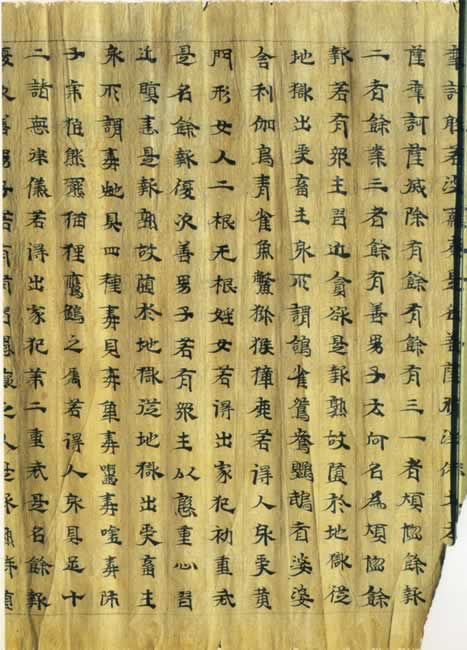 薩摩訶薩滅除有餘有餘有三一者煩惱餘報
二者餘業三者餘有善男子云何名為煩惱餘
報若有眾生習近貪欲是報熟故墮於地獄從
地獄出受畜生身所謂鴿雀鴛鴦鸚鵡耆婆婆
舍利伽鳥青雀魚鱉猕猴獐鹿若得人身受黃
門形女人二根无根婬女若得出家犯初重戒
是名餘報復次善男子若有眾生以慇重心習
近瞋恚是報熟故墮於地獄從地獄出受畜生
身所謂毒虵具四種毒見毒觸毒齧毒嘘毒師
子虎狼熊羆猫狸鷹鷂之屬若得人身具足十
二諸無律儀若得出家犯第二重戒是名餘報
復次善男子若有習愚癡之人是報熟時墮